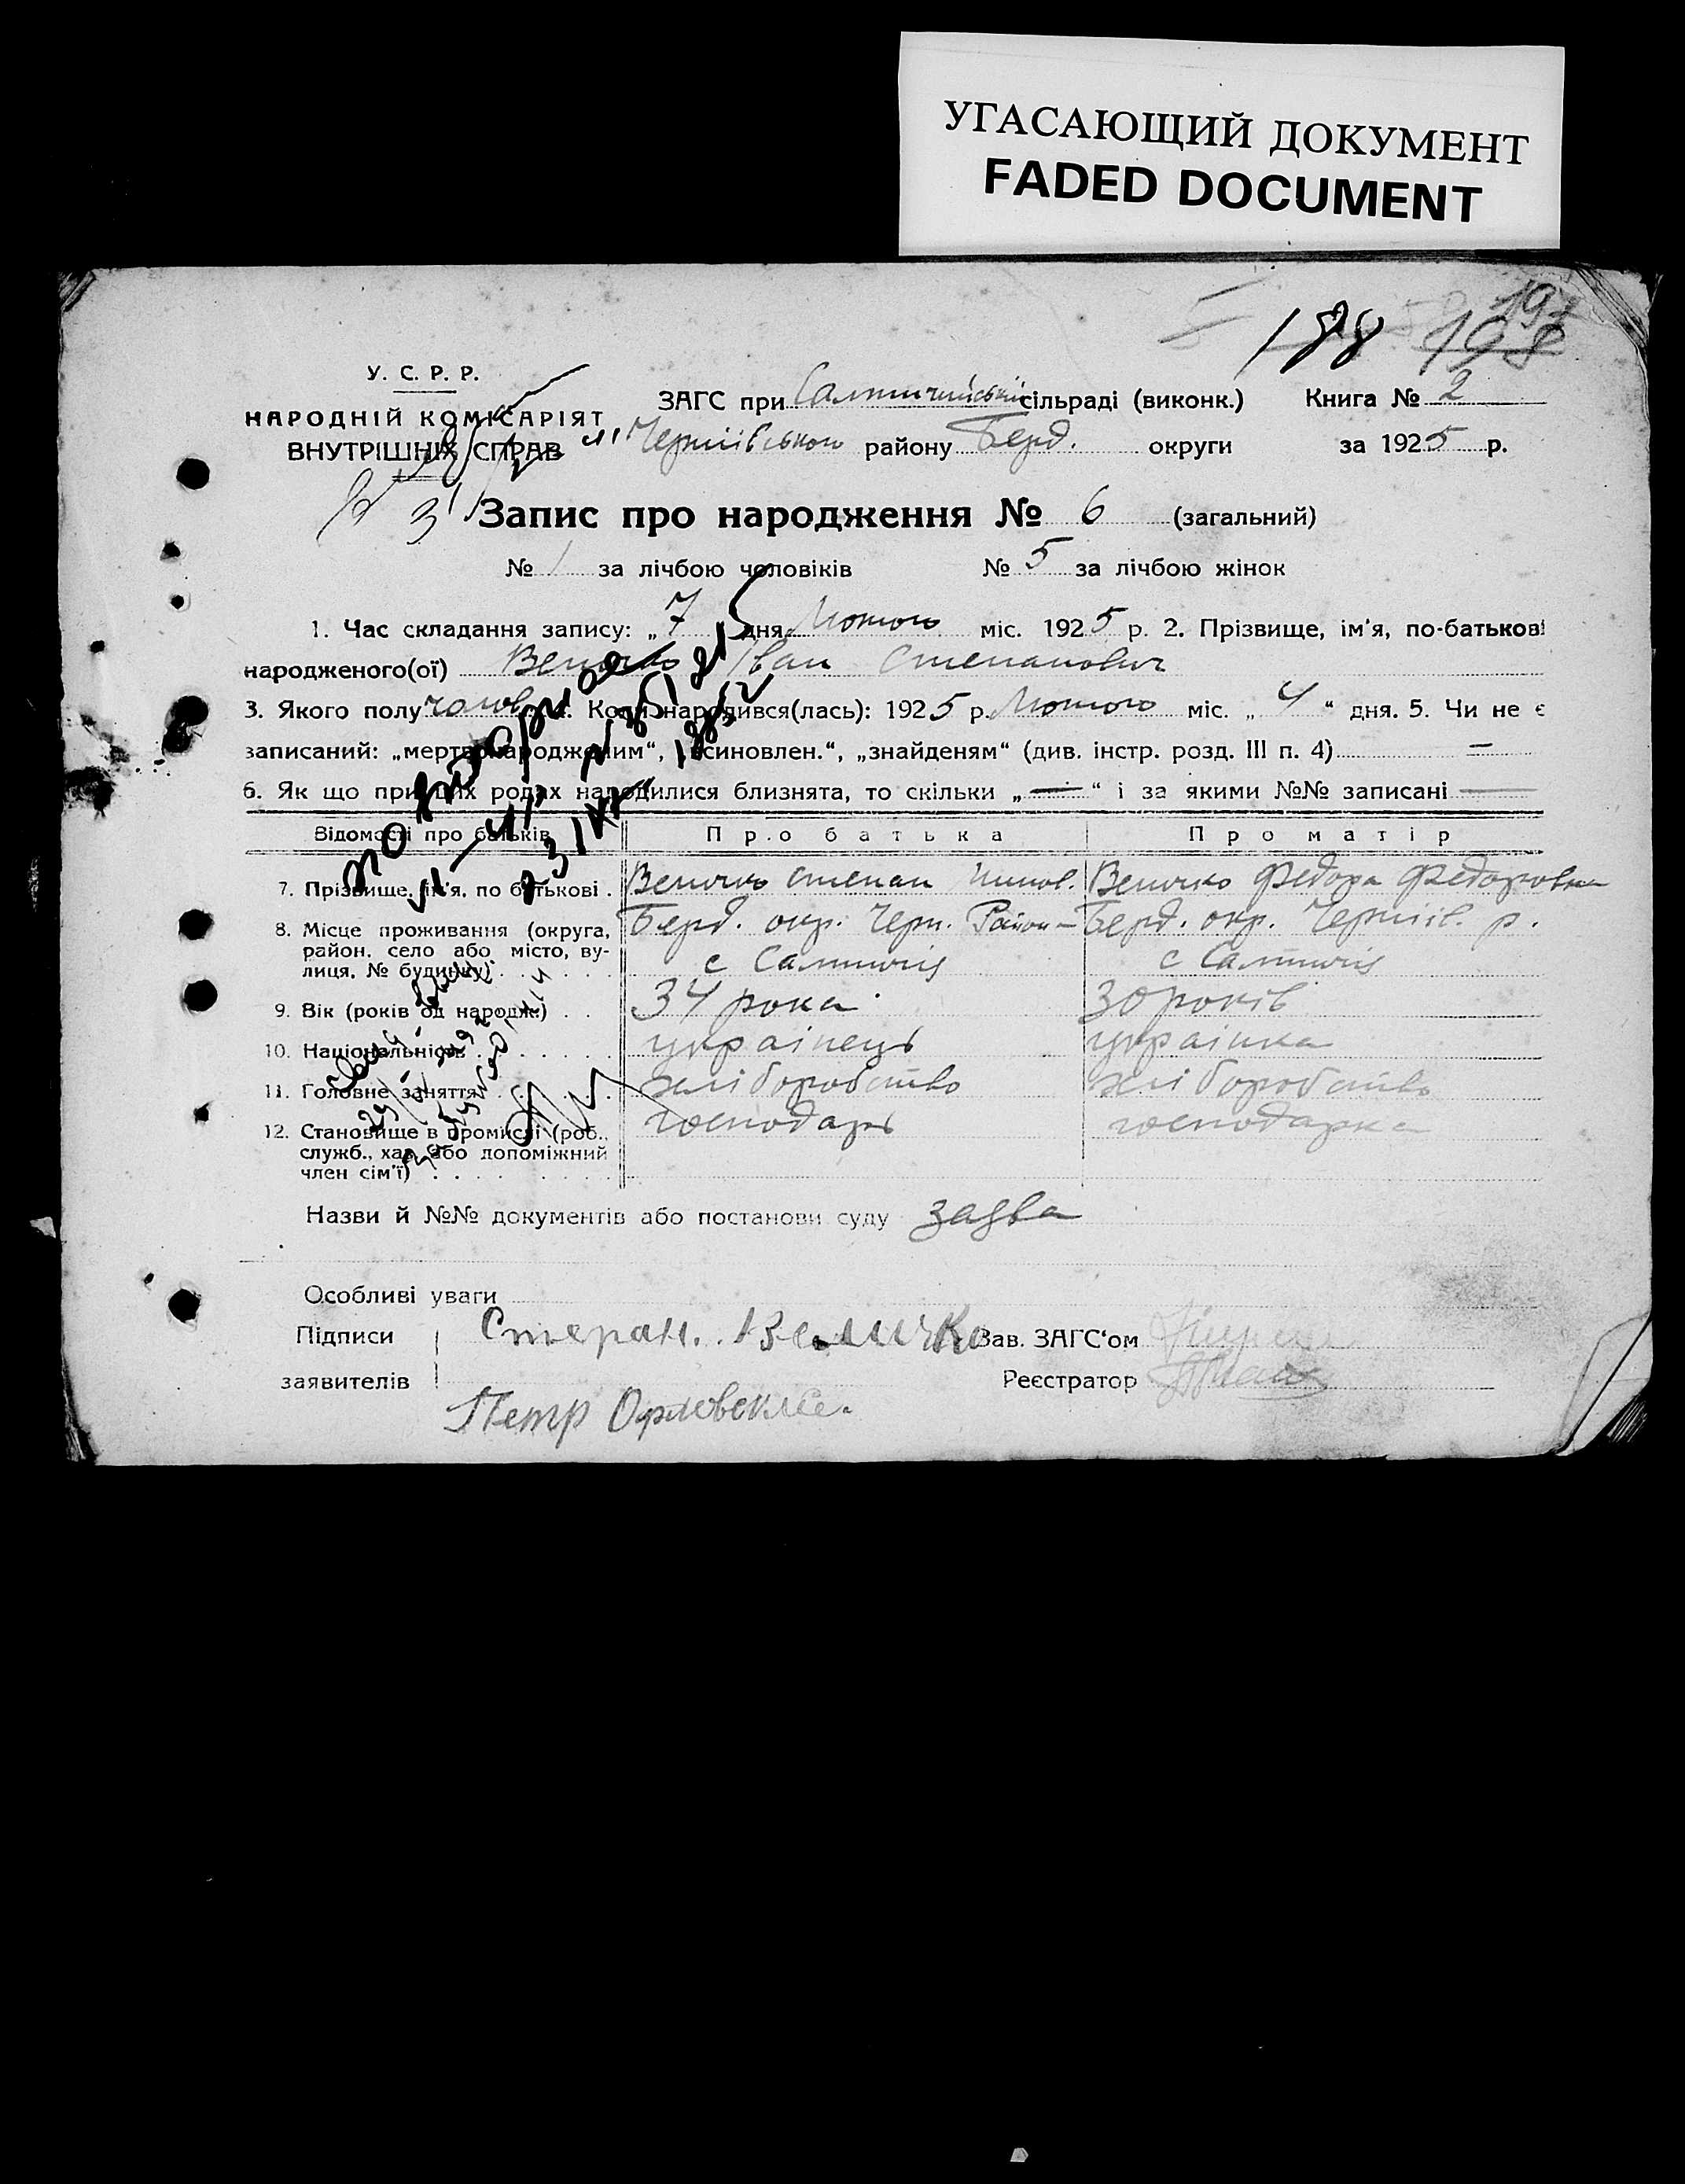 УГАСАЮЩИЙ ДОКУМЕНТ
FADED DOCUMENT
188 198 197
У. С. Р. Р.
НАРОДНІЙ КОМІСАРІЯТ
ВНУТРІШНІХ СПРАВ
ЗАГС при Салтичийській сільраді (виконк.) Книга № 2
Чернігівського району Берд. округи за 1925 р.
Запис про народження № 6 (загальний)
№ 1 за лічбою чоловіків № 5 за лічбою жінок
1. Час складання запису: „7 дня Лютого міс. 1925 р. 2. Прізвище, ім'я, по-батькові
народженого(ої) Величко Іван Степанович
3. Якого полу чолов. 4. Коли народився(лась): 1925 р. Лютого міс. „4“ дня. 5. Чи не є
записаний: „мертвонародженим“, „всиновлен.“, „знайденям“ (див. інстр. розд. III п. 4) —
6. Як що при цих родах народилися близнята, то скільки „—“ і за якими №№ записані —
Відомості про батьків Про батька Про матір
7. Прізвище, ім'я, по батькові . Величко Степан Величко Федора Федоровна
8. Місце проживання (округа, Берд. окр. Черн. Район — Берд. окр. Черніг. р.
район, село або місто, ву-
лиця, № будинку) с Салтичія с Салтичія
9. Вік (років од народж.) . . 34 рока 30 років
10. Національність українець українка
11. Головне заняття хліборобство хліборобство
12. Становище в промислі (роб., господарь господарка
служб., хаз. або допоміжний
член сім'ї)
Назви й №№ документів або постанови суду заява
Особливі уваги
Підписи Степан. Величко Зав. ЗАГС'ом
заявителів Реєстратор
Петр Орловский.